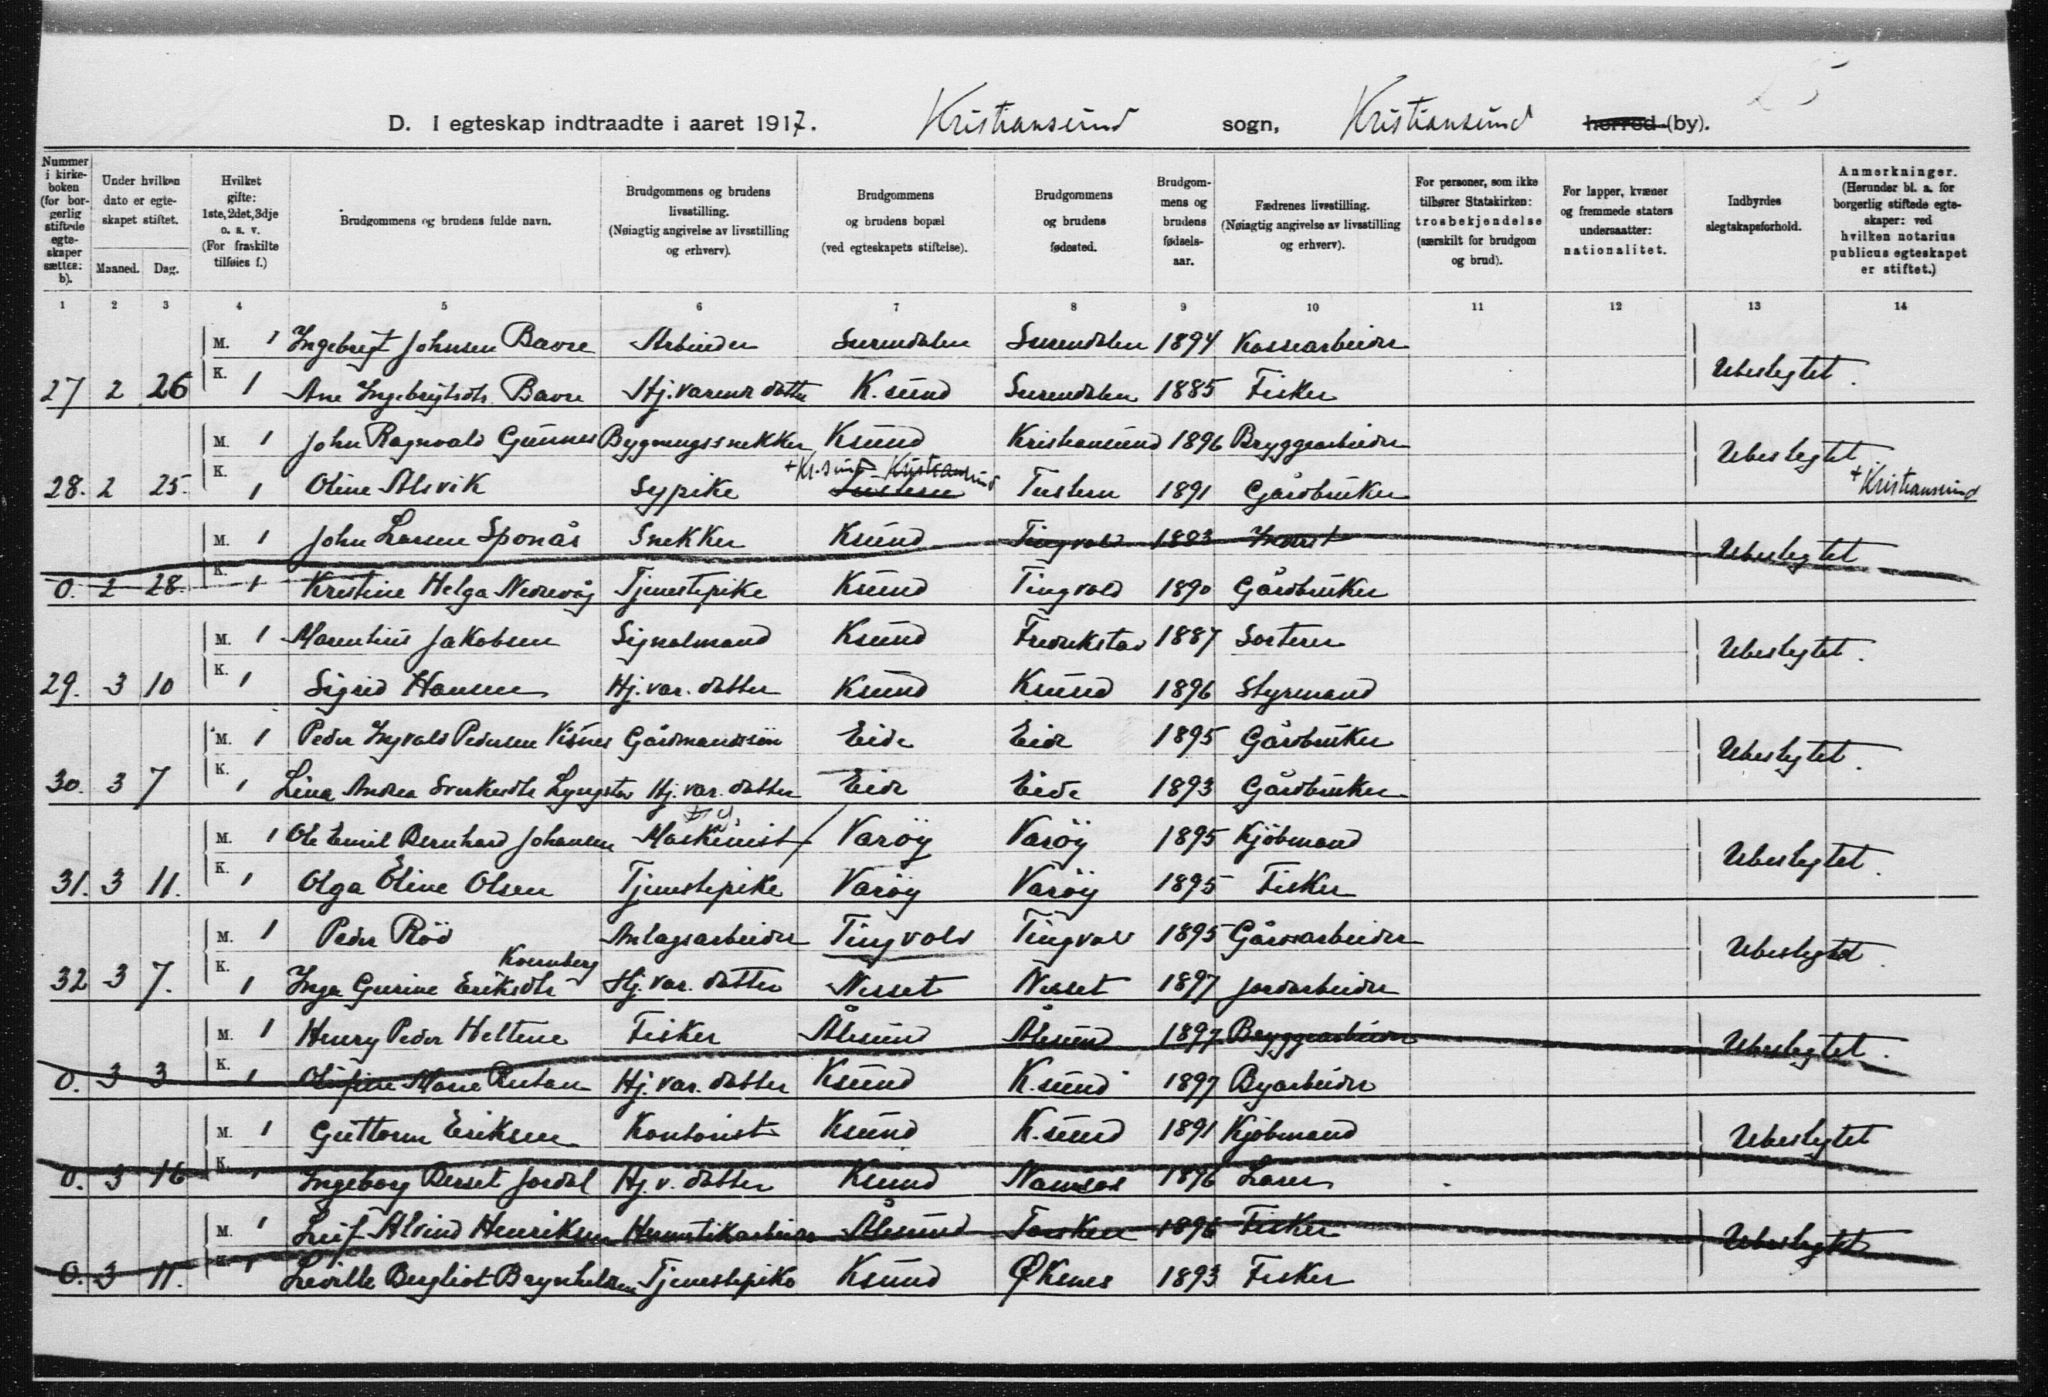 D. I egteskap indtraadte i aaret 1917. Kristiansund sogn, Kristiansund herred (by).
Nummer i kirkeboken (for borgerlig stiftede egteskaper sættes: b). | Under hvilken dato er egteskapet stiftet. Maaned. Dag. | Hvilket gifte: 1ste, 2det, 3dje o. s. v. (For fraskilte tilføies f.) | Brudgommens og brudens fulde navn. | Brudgommens og brudens livsstilling. (Nøiagtig angivelse av livsstilling og erhverv). | Brudgommens og brudens bopæl (ved egteskapets stiftelse). | Brudgommens og brudens fødested. | Brudgommens og brudens fødselsaar. | Fædrenes livsstilling. (Nøiagtig angivelse av livsstilling og erhverv). | For personer, som ikke tilhører Statskirken: trosbekjendelse (særskilt for brudgom og brud). | For lapper, kvæner og fremmede staters undersaatter: nationalitet. | Indbyrdes slegtskapsforhold. | Anmerkninger. (Herunder bl. a. for borgerlig stiftede egteskaper: ved hvilken notarius publicus egteskapet er stiftet.)
1 2 3 4 5 6 7 8 9 10 11 12 13 14
M. 1 Ingebrigt Johnsen Bavre Arbeider Surendalen Surendalen 1894 Kassearbeider
27 2 26 K. 1 Ane Ingebrigtsdtr Bavre Hj. værende datter K.sund Surendalen 1885 Fisker Ubeslegtet.
M. 1 John Ragnvald Gunnes Bygningssnekker Ksund Kristiansund 1896 Bryggearbeider
+Kr.sund Kristiansund
28. 2 25. K. 1 Oline Alsvik Sypike Tustern Tustern 1891 Gårdbruker Ubeslegtet +Kristiansund
M. 1 John Larsen Sponås Snekker Ksund Tingvold 1883
0. 2 28. K. 1 Kristine Helga Nedrevåg Tjenestepike Ksund Tingvold 1890 Gårdbruker Ubeslegtet
M. 1 Marentius Jakobsen Signalmand Ksund Fredrikstad 1887 Sorterer
29. 3 10 K. 1 Sigrid Hansen Hj. vær. datter Ksund Ksund 1896 Styrmand Ubeslegtet.
M. 1 Peder Ingvald Pedersen Visnes Gårdmandssøn Eide Eide 1895 Gårdbruker
30. 3 7 K. 1 Lina Andrea Sverkesdtr Lyngstad Hj. vær. datter Eide Eide 1893 Gårdbruker Ubeslegtet.
M. 1 Ole Emil Bernhard Johansen Maskinist Værøy Værøy 1895 Kjøbmand
31. 3 11. K. 1 Olga Eline Olsen Tjenestepike Værøy Værøy 1895 Fisker Ubeslegtet.
M. 1 Peder Röd Anlagsarbeider Tingvold Tingvold 1895 Gårdsarbeider
Kvernberg
32 3 7. K. 1 Inga Gurine Eriksdtr Hj. vær. datter Nesset Nesset 1897 Jordarbeider Ubeslegtet.
M. 1 Henry Peder Heltene Fisker Ålesund Ålesund 1897 Bryggearbeider
0. 3 3 K. 1 Marie Hj. vær. datter Ksund K.sund 1897 Byarbeider Ubeslegtet.
M. 1 Guttorm Eriksen Kontorist Ksund K.sund 1891 Kjøbmand
0. 3 16 K. 1 Ingeborg Berset Jordal Hj. v. datter Ksund Namsos 1896 Lærer Ubeslegtet
M. 1 Leif Alvind Henriksen Hermetikarbeider Ålesund Torsken 1896 Fisker
0. 3 11. K. 1 Bergliot Brynhildsen Tjenestepike Ksund Øksnes 1893 Fisker Ubeslegtet